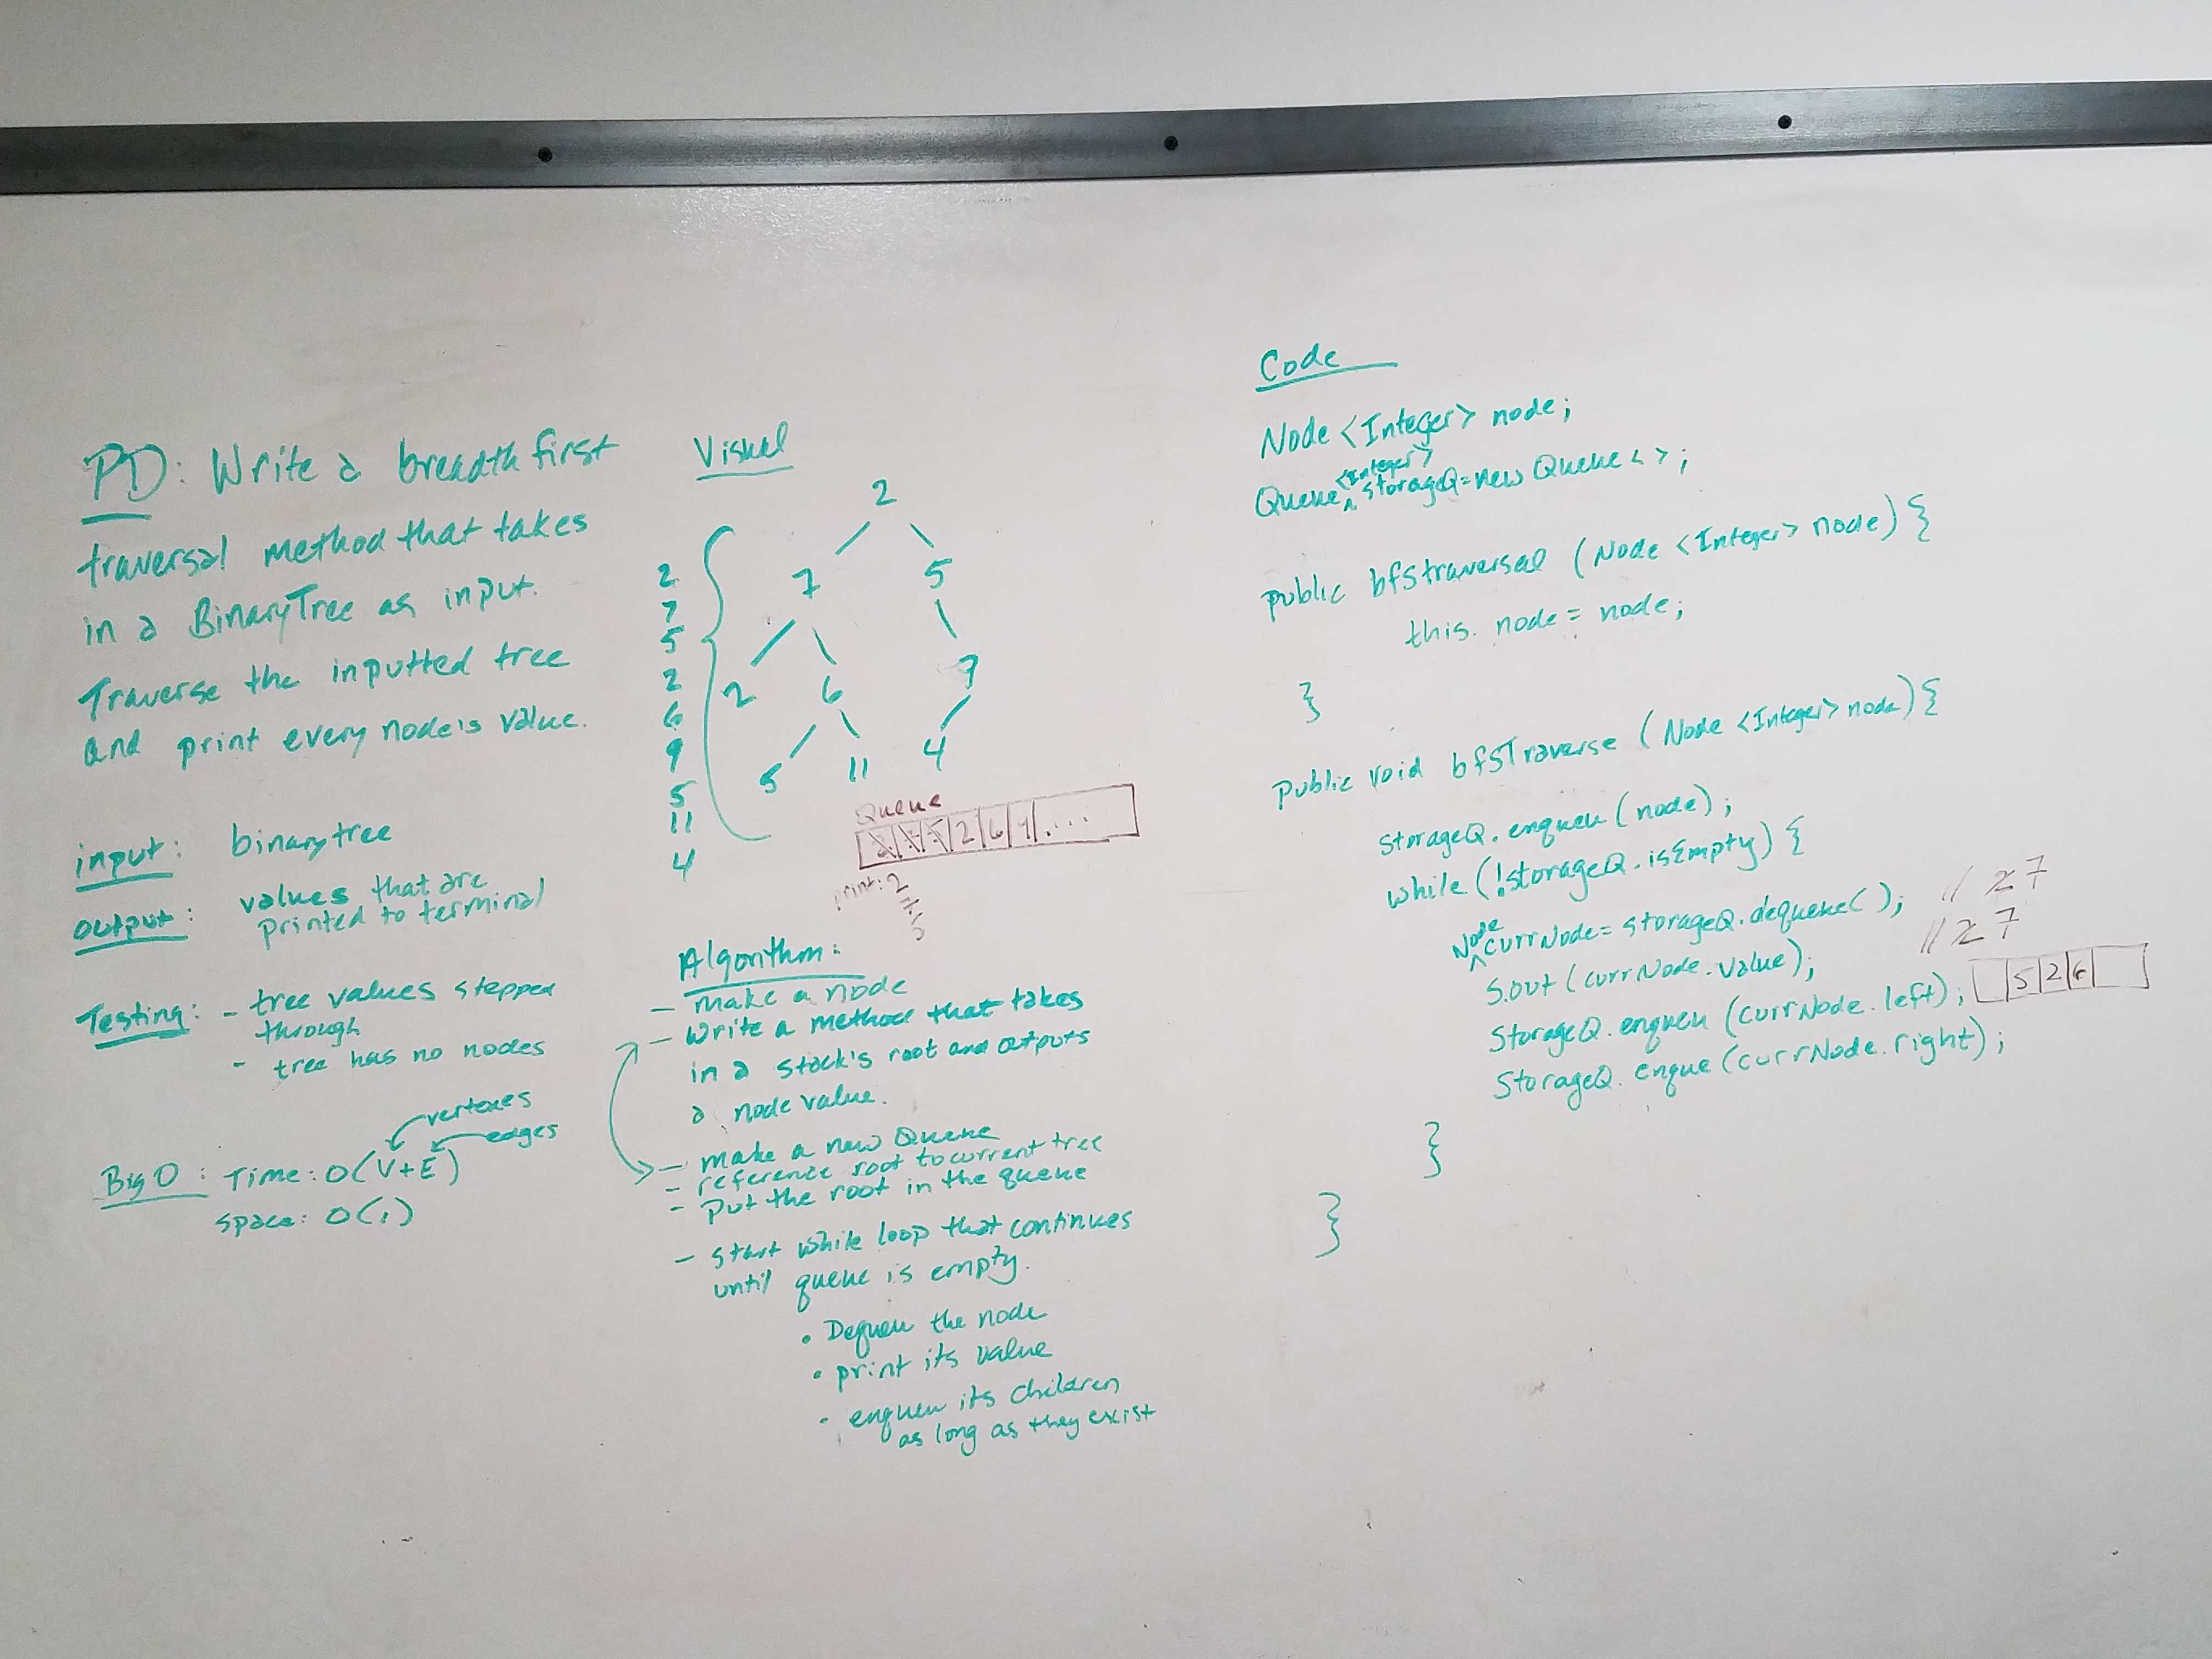 PD: Write a breadth first
traversal method that takes
in a BinaryTree as input.
Traverse the inputted tree
and print every node's value.
input: binary tree
output: values that are
printed to terminal
Testing: - tree values stepped
through
- tree has no nodes
vertexes
edges
Big O: Time: O(V+E)
Space: O(1)
Visual
2
7 5
2 6 9
5 11 4
2
7
5
2
6
9
5
11
4
Queue
2 7 5 2 6 9 ....
print: 2
7
5
Algorithm:
- make a node
- Write a method that takes
in a stack's root and outputs
a node value.
- make a new Queue
- reference root to current tree
- Put the root in the queue
- start while loop that continues
until queue is empty.
• Dequeu the node
• print its value
• enqueu its children
as long as they exist
Code
Node <Integer> node;
Queue <Integer> storageQ = new Queue < >;
public bfstraversal (Node <Integer> node) {
this. node = node;
}
public void bfsTraverse (Node <Integer> node) {
StorageQ. enqueu (node);
while (!storageQ. isEmpty) {
Node currNode = storageQ. dequeue( ); // 2 7
S.out (currNode. value); // 2 7
StorageQ. enqueu (currNode. left); 5 2 6
StorageQ. enque (currNode. right);
}
}